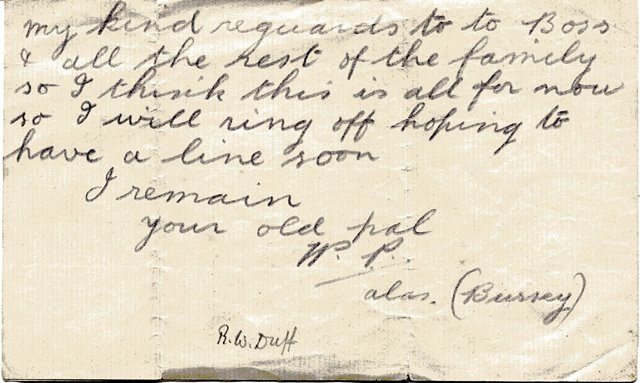 my kind reguards to to Boss
& all the rest of the family
so I think this is all for now
so I will ring off hoping to
have a line soon
I remain
your old pal
W. P.
alas. (Bursey)
R.W. Duff